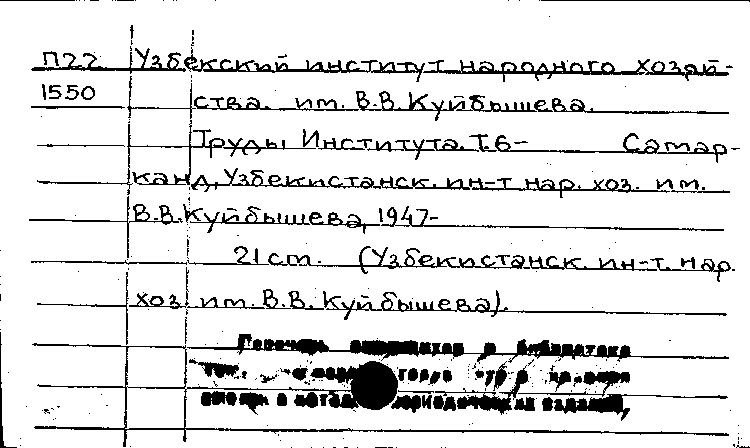 П22 Узбекский институт народного хозяй-
1550 ства. им. В.В.Куйбышева.
Труды Института. Т.6- Самар-
канд, Узбекистанск. ин-т нар. хоз. им.
В.В.Куйбышева, 1947-
21 cm. (Узбекистанск. ин-т. нар.
хоз им. В.В. Куйбышева).
Перечень имеющихся в библиотеке